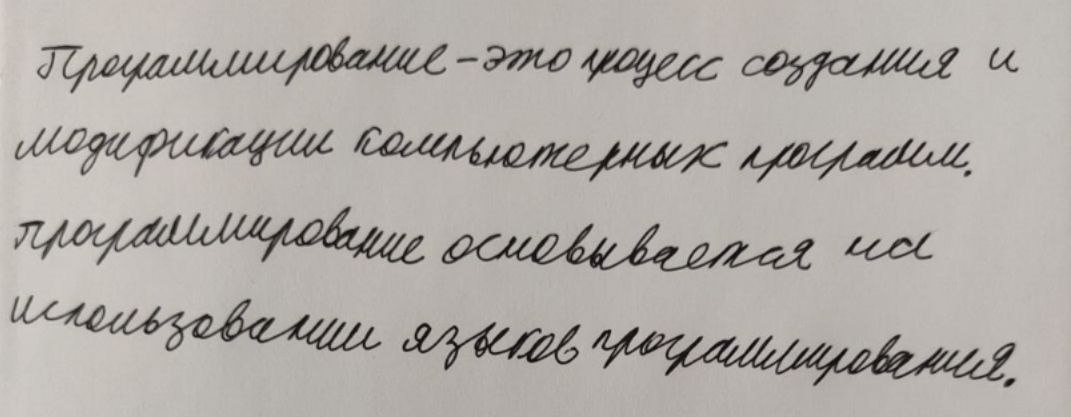 Программирование – это процесс создания и
модификации компьютерных программ.
программирование основывается на
использовании языков программирования.